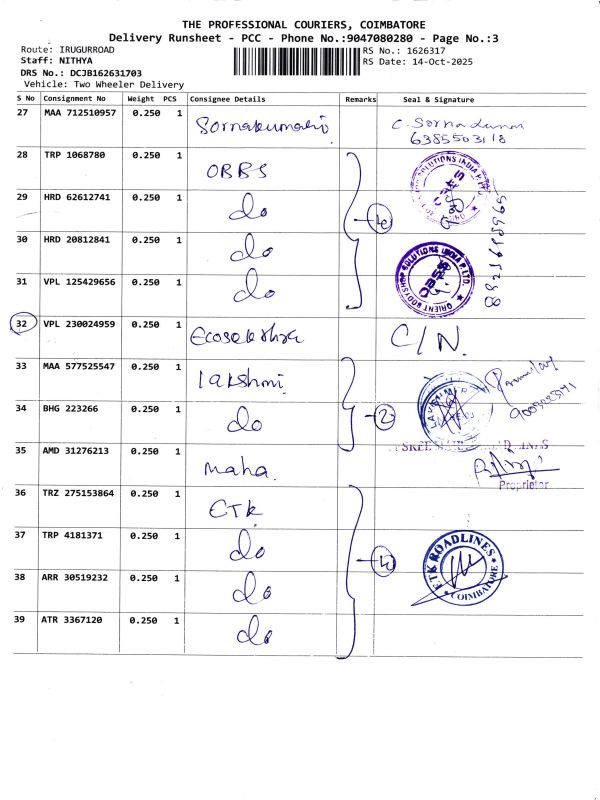 THE PROFESSIONAL COURIERS, COIMBATORE
Delivery Runsheet - PCC - Phone No.:9047080280 - Page No.:3
Route: IRUGURROAD
RS No.: 1626317
Staff: NITHYA
RS Date: 14-Oct-2025
DRS No.: DCJB162631703
Vehicle: Two Wheeler Delivery
S No Consignment No Weight PCS Consignee Details Remarks Seal & Signature
27 MAA 712510957 0.250 1 Sornakumari
6385503118
28 TRP 1068780 0.250 1 OBBS
29 HRD 62612741 0.250 1 do
30 HRD 20812841 0.250 1 do
31 VPL 125429656 0.250 1 do
ORIENT BODYSHOP SOLUTIONS INDIA P. LTD.
OBSS
32 VPL 230024959 0.250 1 C/N.
33 MAA 577525547 0.250 1 lakshmi
34 BHG 223266 0.250 1 do 2
35 AMD 31276213 0.250 1 maha.
Proprietor
36 TRZ 275153864 0.250 1 CTK
37 TRP 4181371 0.250 1 do
38 ARR 30519232 0.250 1 do
ETK ROADLINES
COIMBATORE
39 ATR 3367120 0.250 1 do